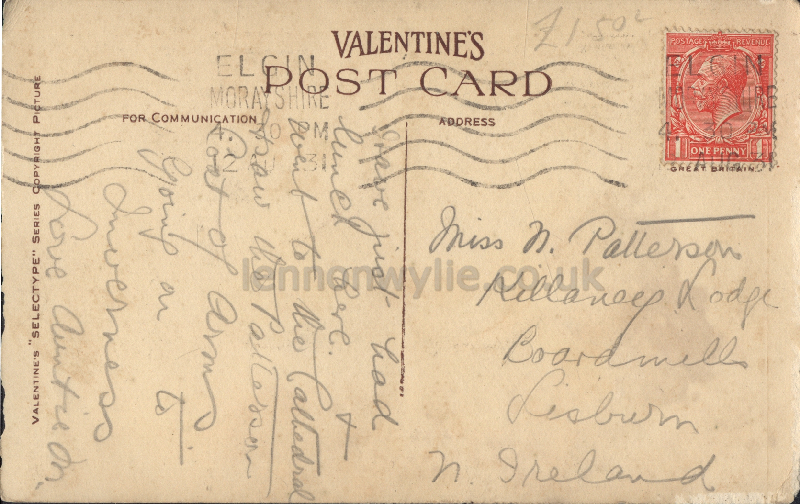 £1.50
VALENTINE'S
POST CARD
FOR COMMUNICATION
ADDRESS
ELGIN
MORAYSHIRE
4. 30 PM
31
POSTAGE REVENUE
1 ONE PENNY 1
GREAT BRITAIN
VALENTINE'S "SELECTYPE" SERIES COPYRIGHT PICTURE
Have just had
lunch here. +
went to the Cathedral
& saw the Patterson
Coat of Arms
Going on to
Inverness
Love Auntie M.
Miss N. Patterson
Killaney Lodge
Boardmills
Lisburn.
N. Ireland
lennonwylie.co.uk